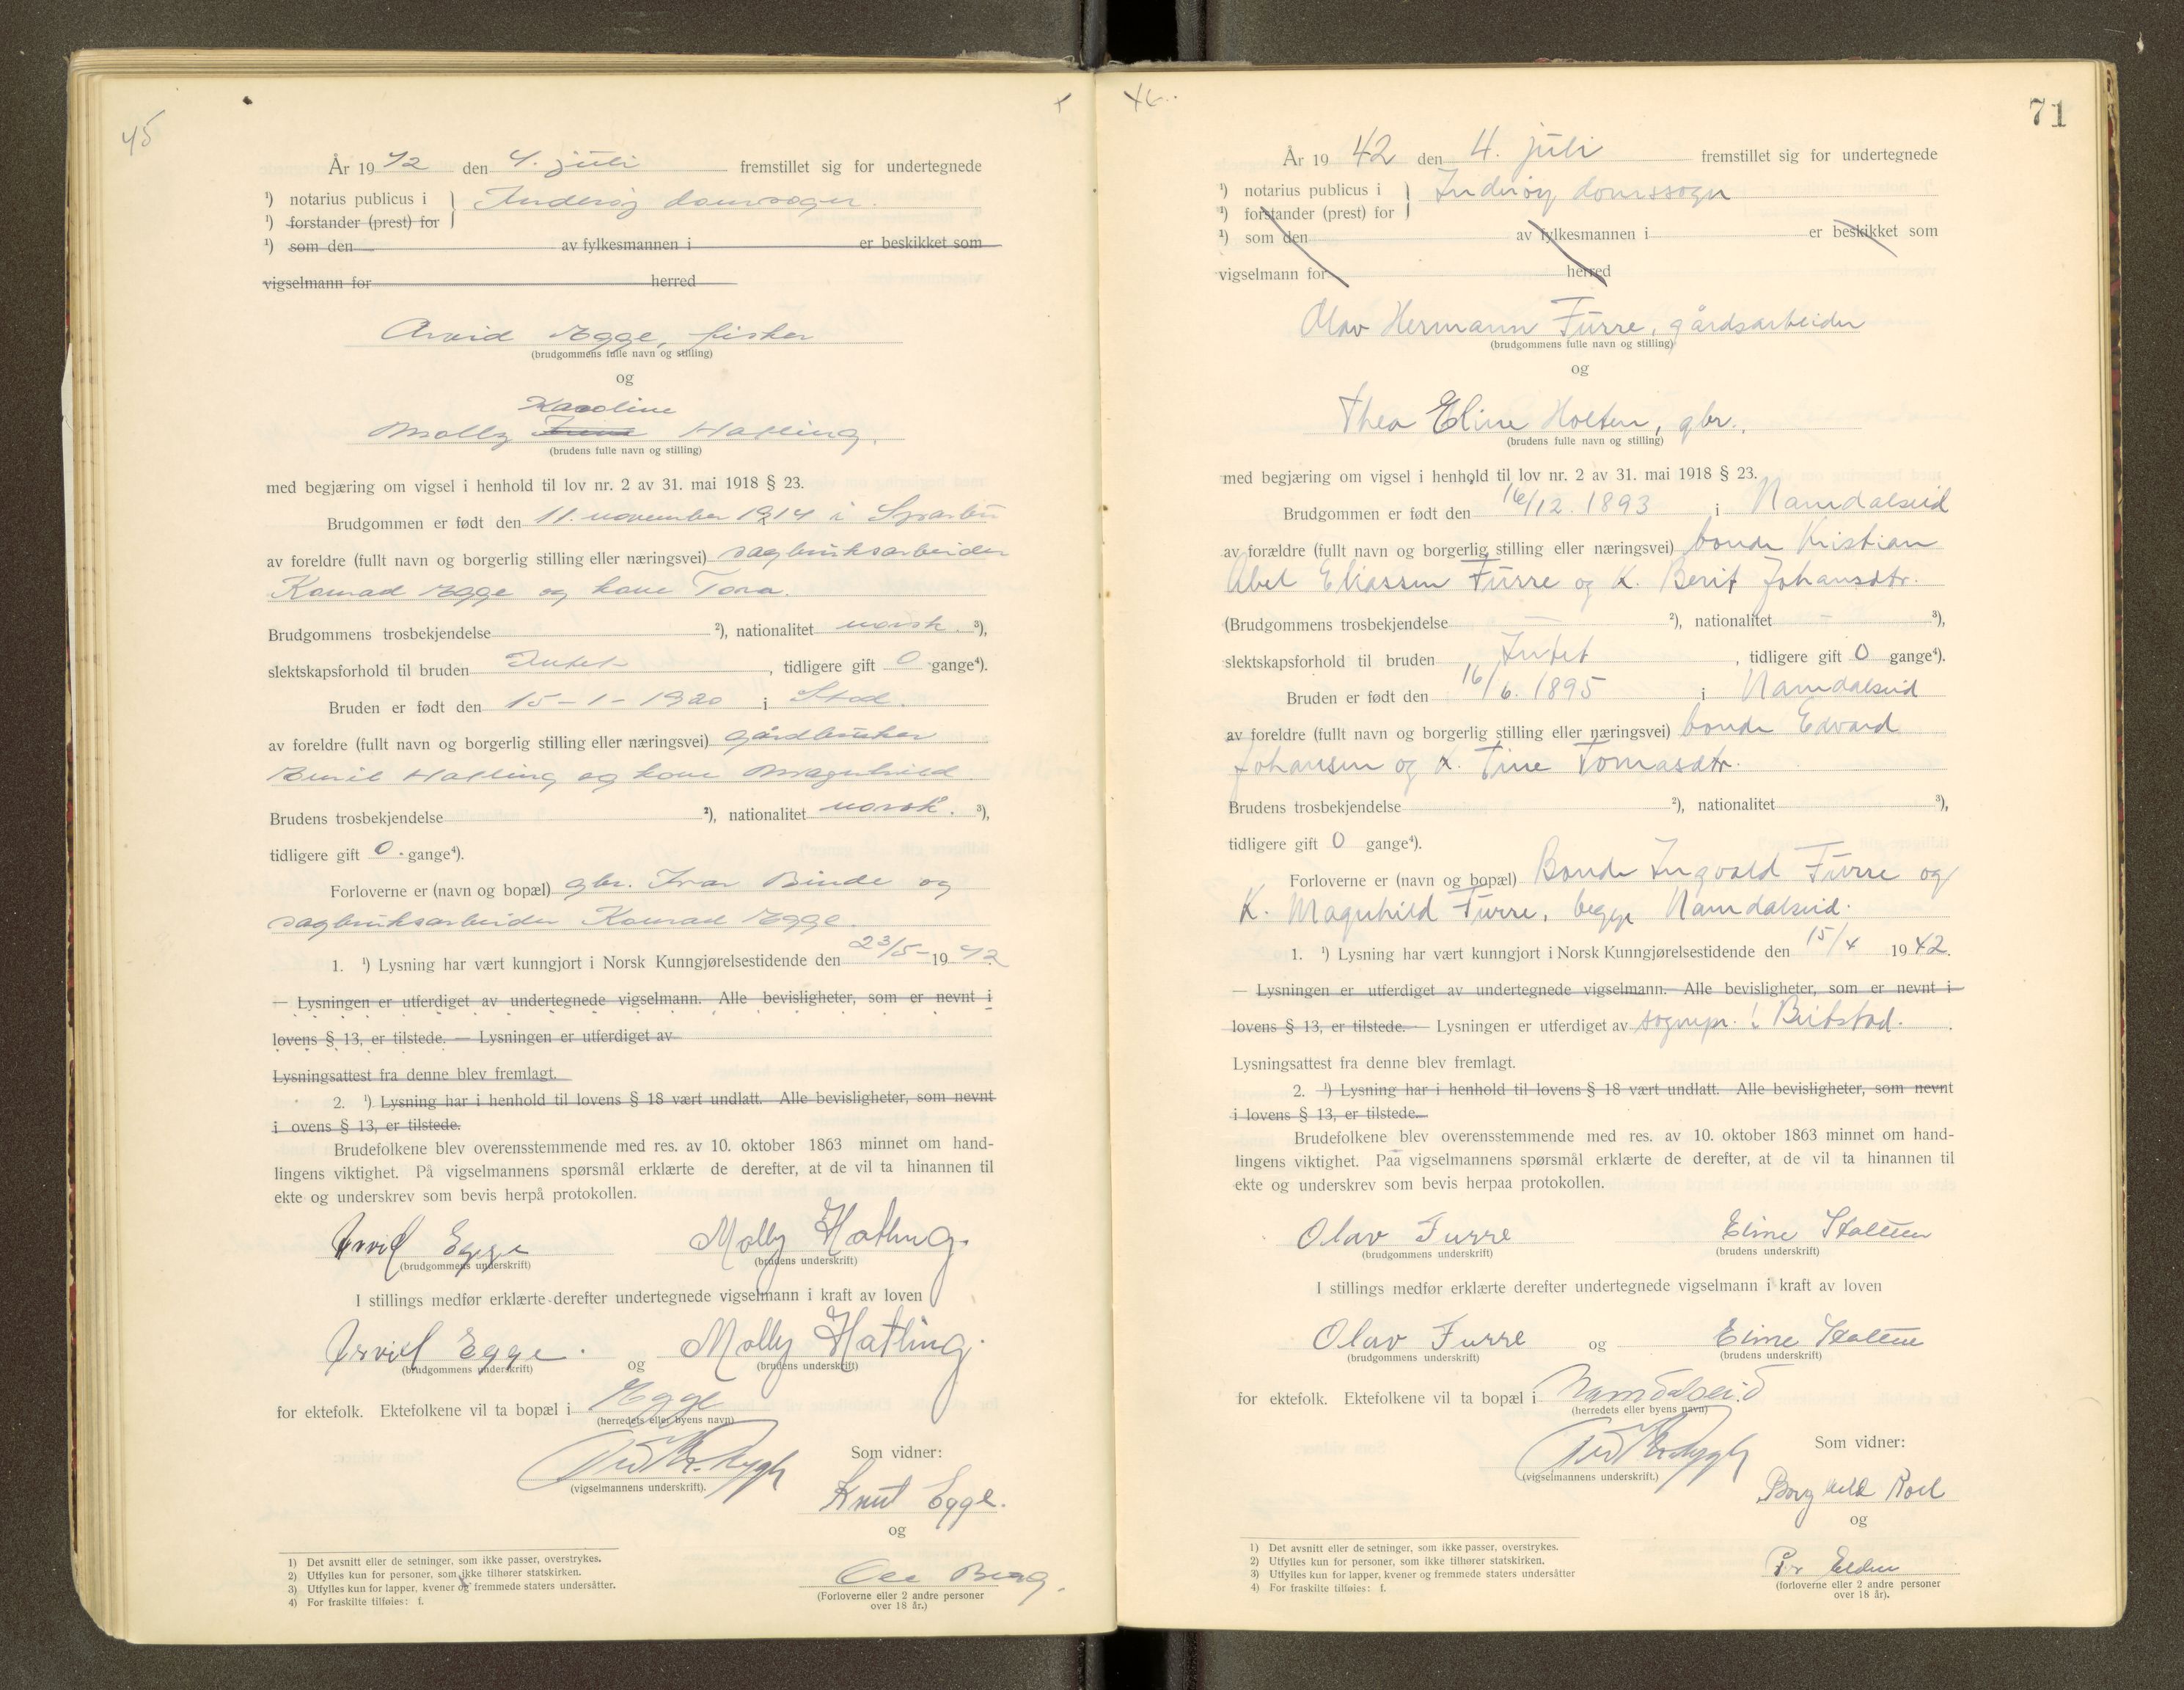 45
År 1942 den 4. juli fremstillet sig for undertegnede
¹) notarius publicus i } Inderøy domssogn.
¹) forstander (prest) for
¹) som den av fylkesmannen i er beskikket som
vigselmann for herred
Arvid Egge, fisker
(brudgommens fulle navn og stilling)
og
Karoline
Molly Hatling.
(brudens fulle navn og stilling)
med begjæring om vigsel i henhold til lov nr. 2 av 31. mai 1918 § 23.
Brudgommen er født den 11. november 1914 i Sparbu
av foreldre (fullt navn og borgerlig stilling eller næringsvei) sagbruksarbeider
Konrad Egge og kone Tora.
Brudgommens trosbekjendelse ²), nationalitet norsk. ³),
slektskapsforhold til bruden Intet, tidligere gift 0 gange⁴).
Bruden er født den 15-1-1920 i Stod.
av foreldre (fullt navn og borgerlig stilling eller næringsvei) gårdbruker
Hatling og kone Magnhild.
Brudens trosbekjendelse ²), nationalitet norsk. ³),
tidligere gift 0. gange⁴).
Forloverne er (navn og bopæl) gbr. Ivar Binde og
sagbruksarbeider Konrad Egge.
1. ¹) Lysning har vært kunngjort i Norsk Kunngjørelsestidende den 23/5- 1942.
— Lysningen er utferdiget av undertegnede vigselmann. Alle bevisligheter, som er nevnt i
lovens § 13, er tilstede. — Lysningen er utferdiget av
Lysningsattest fra denne blev fremlagt.
2. ¹) Lysning har i henhold til lovens § 18 vært undlatt. Alle bevisligheter, som nevnt
i ovens § 13, er tilstede.
Brudefolkene blev overensstemmende med res. av 10. oktober 1863 minnet om hand-
lingens viktighet. På vigselmannens spørsmål erklærte de derefter, at de vil ta hinannen til
ekte og underskrev som bevis herpå protokollen.
Arvid Egge Molly Hatling.
(brudgommens underskrift) (brudens underskrift)
I stillings medfør erklærte derefter undertegnede vigselmann i kraft av loven
Arvid Egge. og Molly Hatling.
(brudgommens underskrift) (brudens underskrift)
for ektefolk. Ektefolkene vil ta bopæl i Egge
(herredets eller byens navn)
Rygh
(vigselmannens underskrift).
Som vidner:
Knut Egge.
og
Berg.
(Forloverne eller 2 andre personer
over 18 år.)
1) Det avsnitt eller de setninger, som ikke passer, overstrykes.
2) Utfylles kun for personer, som ikke tilhører statskirken.
3) Utfylles kun for lapper, kvener og fremmede staters undersåtter.
4) For fraskilte tilføies: f.
46.
71
År 1942 den 4. juli fremstillet sig for undertegnede
¹) notarius publicus i } Inderøy domssogn
¹) forstander (prest) for
¹) som den av fylkesmannen i er beskikket som
vigselmann for herred
Olav Hermann Furre, gårdsarbeider
(brudgommens fulle navn og stilling)
og
Thea Eline Holten, gbr.
(brudens fulle navn og stilling)
med begjæring om vigsel i henhold til lov nr. 2 av 31. mai 1918 § 23.
Brudgommen er født den 16/12. 1893 i Namdalseid
av forældre (fullt navn og borgerlig stilling eller næringsvei) bonde Kristian
Abel Eliassen Furre og K. Berit Johansdtr.
(Brudgommens trosbekjendelse — ²), nationalitet — ³),
slektskapsforhold til bruden Intet, tidligere gift 0 gange⁴).
Bruden er født den 16/6. 1895 i Namdalseid
av foreldre (fullt navn og borgerlig stilling eller næringsvei) bonde Edvard
Johansen og K. Tine Tomasdtr.
Brudens trosbekjendelse ²), nationalitet ³),
tidligere gift 0 gange⁴).
Forloverne er (navn og bopæl) Bonde Ingvald Furre og
K. Magnhild Furre, begge Namdalseid.
1. ¹) Lysning har vært kunngjort i Norsk Kunngjørelsestidende den 15/4 1942.
— Lysningen er utferdiget av undertegnede vigselmann. Alle bevisligheter, som er nevnt i
lovens § 13, er tilstede. — Lysningen er utferdiget av sognepr. i Beitstad.
Lysningsattest fra denne blev fremlagt.
2. ¹) Lysning har i henhold til lovens § 18 vært undlatt. Alle bevisligheter, som nevnt
i lovens § 13, er tilstede.
Brudefolkene blev overensstemmende med res. av 10. oktober 1863 minnet om hand-
lingens viktighet. Paa vigselmannens spørsmål erklærte de derefter, at de vil ta hinannen til
ekte og underskrev som bevis herpaa protokollen.
Olav Furre Eline Holten
(brudgommens underskrift) (brudens underskrift)
I stillings medfør erklærte derefter undertegnede vigselmann i kraft av loven
Olav Furre og Eline Holten
(brudgommens underskrift) (brudens underskrift)
for ektefolk. Ektefolkene vil ta bopæl i Namdalseid
(herredets eller byens navn)
Rygh
(vigselmannens underskrift.)
Som vidner:
Borghild
og
Elden
(forloverne eller 2 andre personer
over 18 år).
1) Det avsnitt eller de setninger, som ikke passer, overstrykes.
2) Utfylles kun for personer, som ikke tilhører statskirken.
3) Utfylles kun for lapper, kvener og fremmede staters undersåtter
4) For fraskilte tilføies: f.